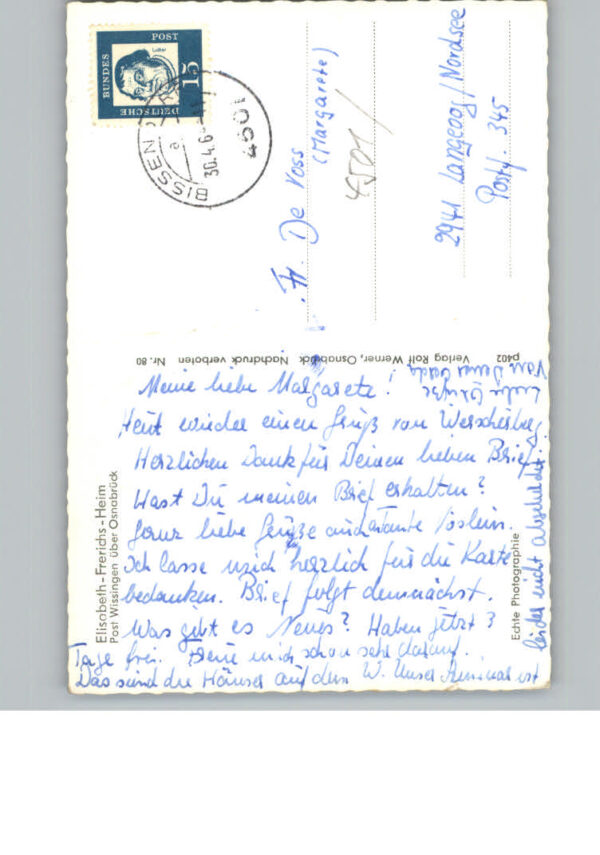 BUNDES
POST
DEUTSCHE
15
Luther
BISSEND
a
30.4.6
4501
Fr. De Voss
(Margarete)
4501/
2941 Langeoog/Nordsee
Postf. 345
p402 Verlag Rolf Werner, Osnabrück Nachdruck verboten Nr. 80
Elisabeth-Frerichs-Heim
Post Wissingen über Osnabrück
Echte Photographie
Meine liebe Margarete!
Heut wieder einen Gruß von Werscherberg.
Herzlichen Dank für Deinen lieben Brief.
Hast Du meinen Brief erhalten?
Ganz liebe Grüße auch Tante
Ich lasse mich herzlich für die Karte
bedanken. Brief folgt demnächst.
Was gibt es Neues? Haben jetzt 3
Tage frei. Freue mich schon sehr darauf.
Das sind die Häuser auf dem W. Unser ist
leider nicht abgebildet.
Liebe Grüße
von Deiner